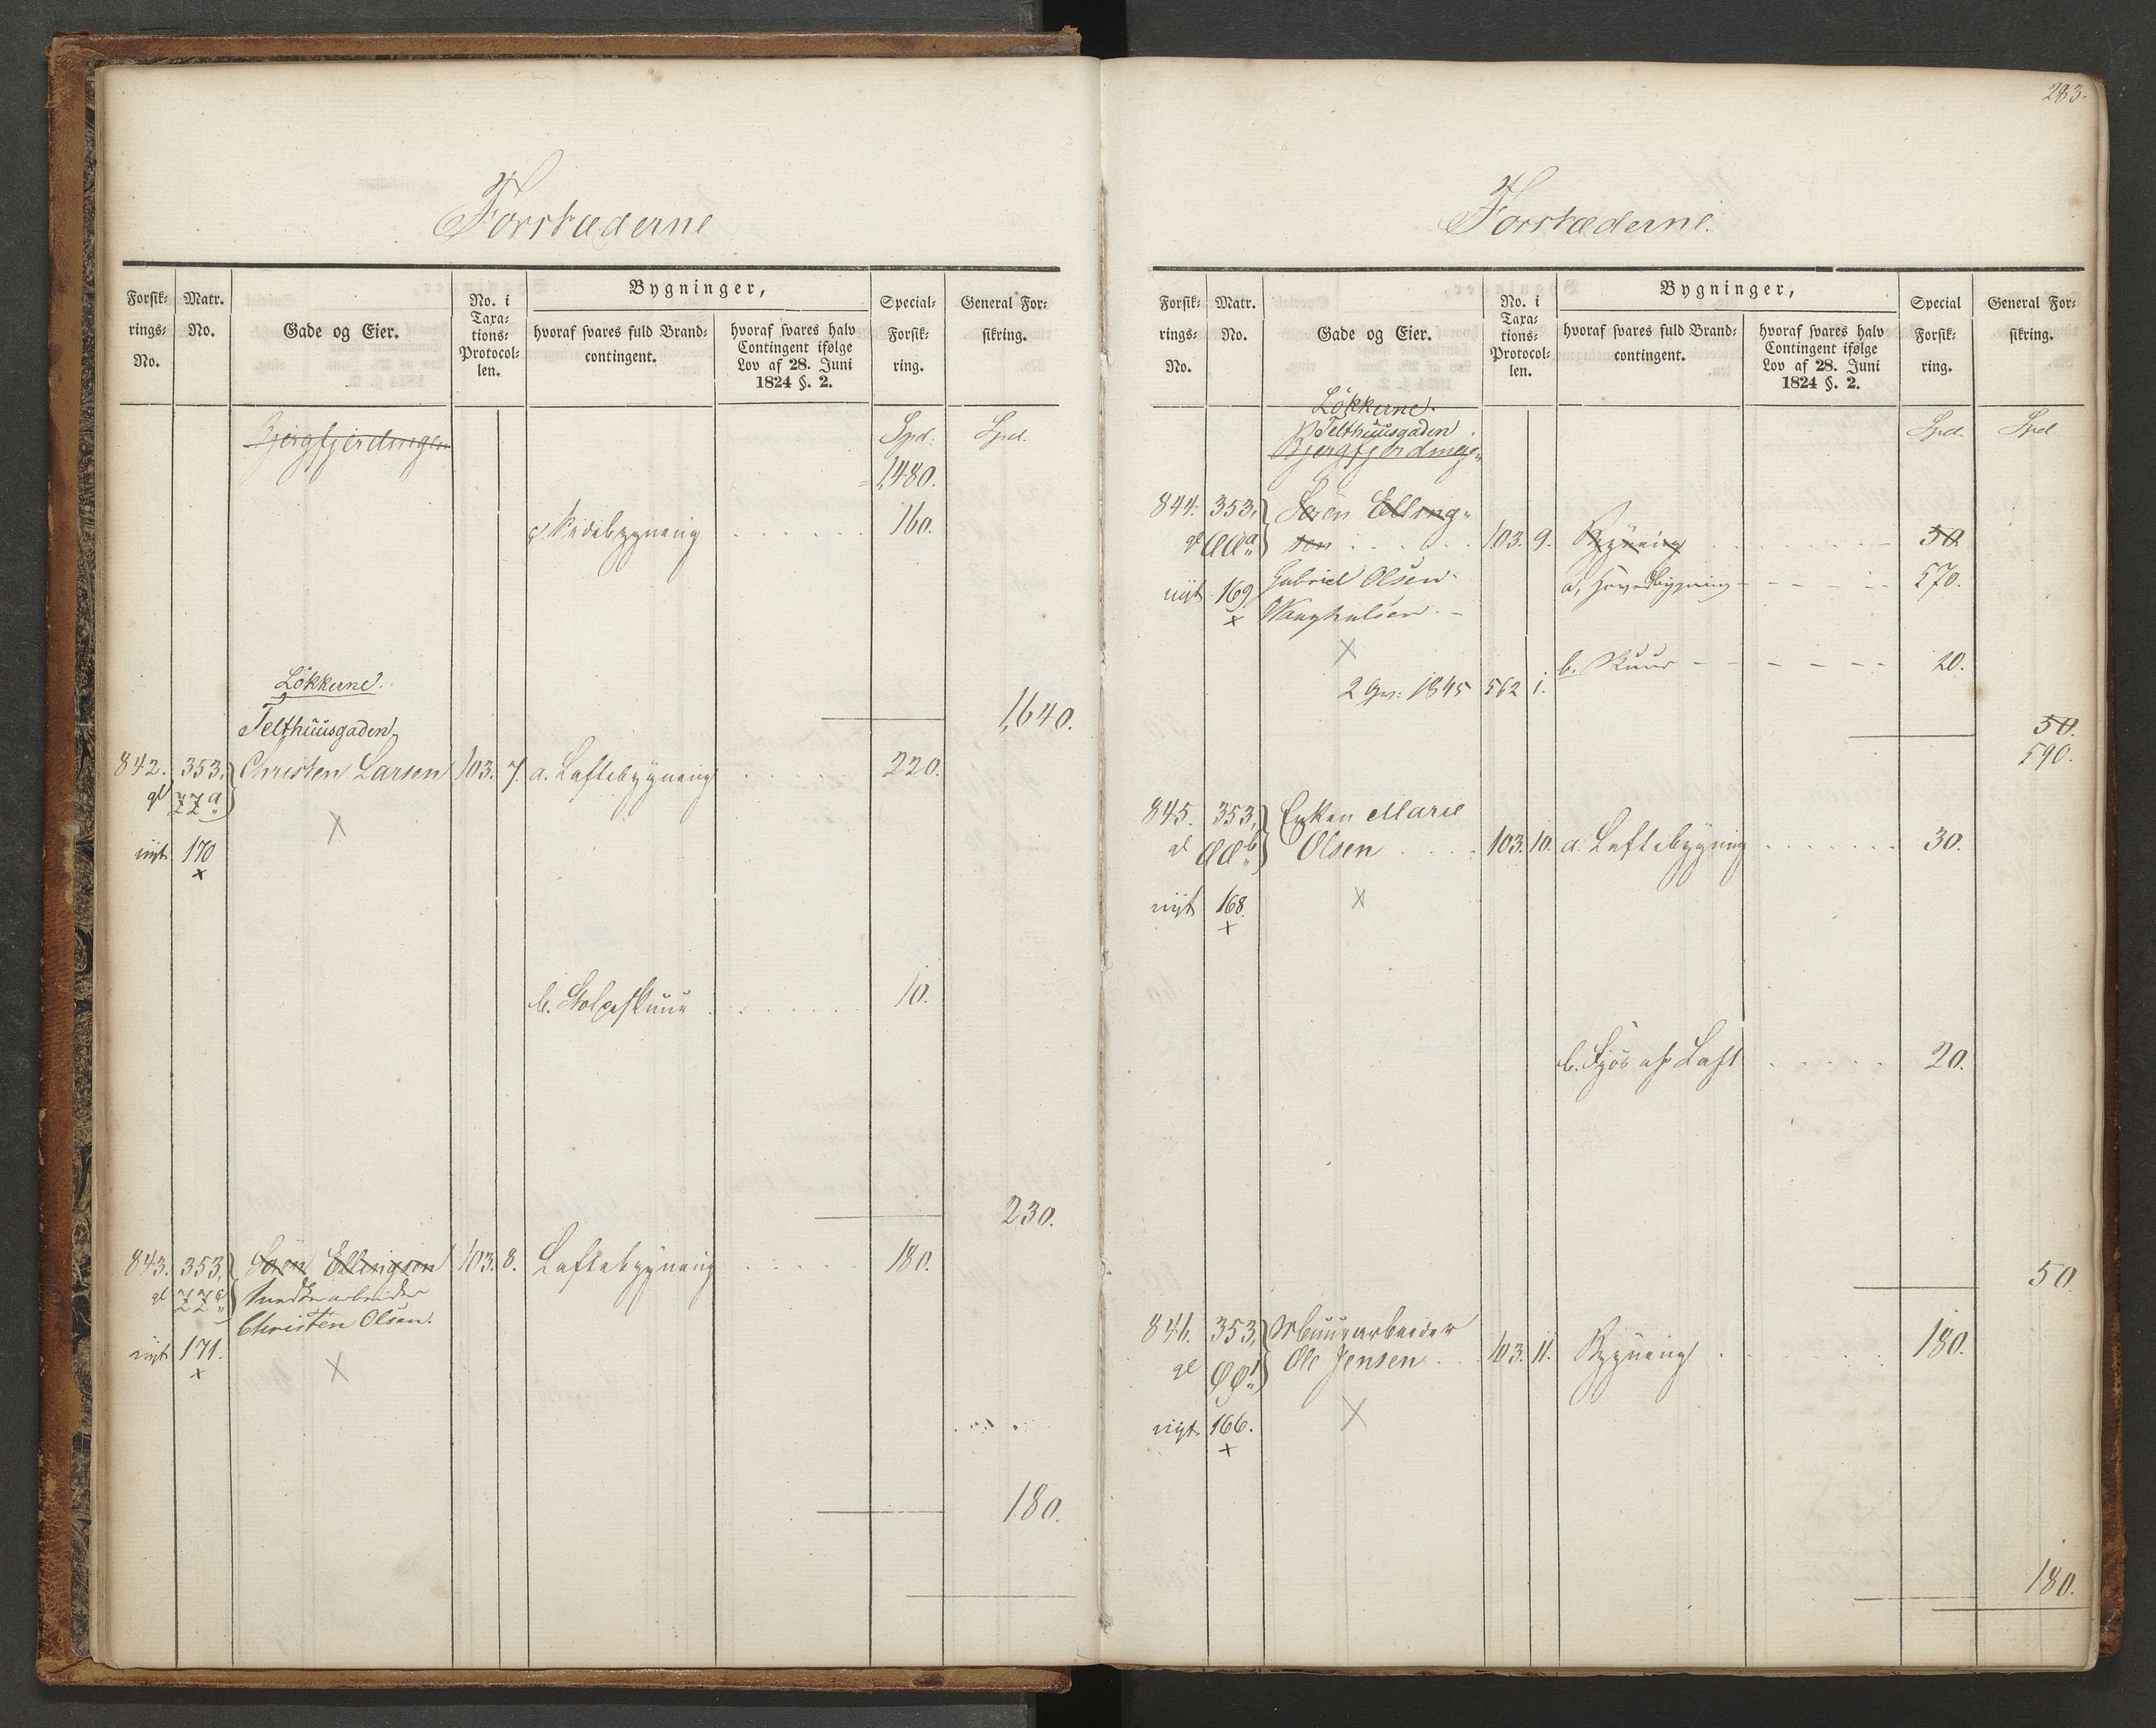 Forstæderne
Forsik-
rings-
No.
Matr.
No.
Gade og Eier.
No. i
Taxa-
tions-
Protocol-
len.
Bygninger,
hvoraf svares fuld Brand-
contingent.
hvoraf svares halv
Contingent ifølge
Lov af 28. Juni
1824 §. 2.
Special-
Forsik-
ring.
General For-
sikring.
Bjergfjerdingen
Spd. Spd.
1,480.
Sidebygning 160.
Løkkerne.
1,640.
Telthuusgaden
842. 353, Christen Larsen 103. 7. a. Laftebygning 220.
gl ZZa
nyt 170
x
X
b. Stolpeskuur 10.
230.
843. 353, Sören Ellingsen 103. 8. Laftebygning 180.
gl ZZ
Christen Olsen.
nyt 171.
x
X
180.
283.
Forstæderne.
Forsik-
rings-
No.
Matr.
No.
Gade og Eier.
No. i
Taxa-
tions-
Protocol-
len.
Bygninger,
hvoraf svares fuld Brand-
contingent.
hvoraf svares halv
Contingent ifølge
Lov af 28. Juni
1824 §. 2.
Special
Forsik-
ring.
General For-
sikring.
Løkkerne.
Telthuusgaden
Spd. Spd
Bjergfjerdingen
844. 353, Sören Elling-
gl ÆÆa sen 103. 9. Bygning 50
Gabriel Olsen a, Hovedbygning 570.
nyt 169
x
X
b. Skuur 20.
1845 562 1.
50.
590.
845. 353, Enken Marie
gl ÆÆb Olsen 103. 10. a. Laftebygning 30.
nyt 168.
x
X
b. Fjøs af Laft 20.
50.
846. 353, Muurarbeider
gl ØØ Ole Jensen 103. 11. Bygning 180.
nyt 166.
x
X
180.